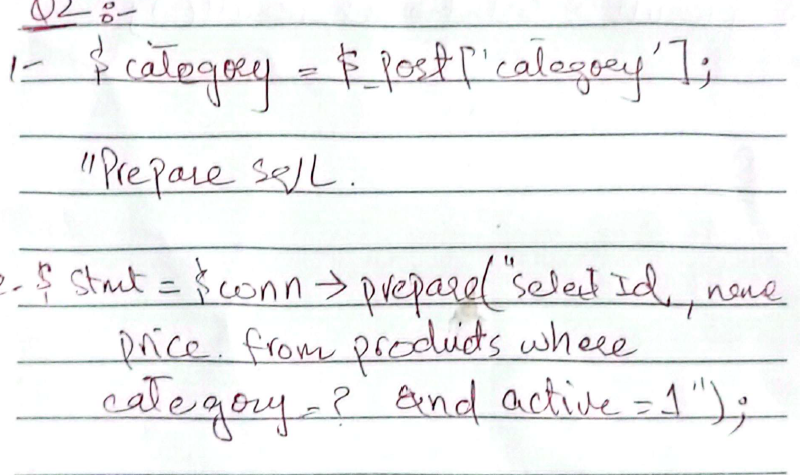 Q2 :-
1- $ category = $_post['category'];
"Prepare sqlL.
2- $ stmt = $conn → prepare("select Id, , name
price. from products where
category = ? and active = 1");